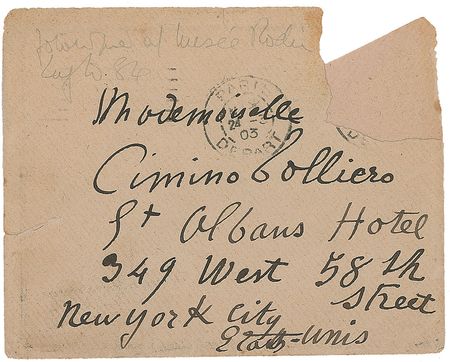 Musée Rodin
PARIS
24
03
DEPART
Mademoiselle
Cimino
St Albans Hotel
349 West 58th
Street
New York City
Etats-Unis